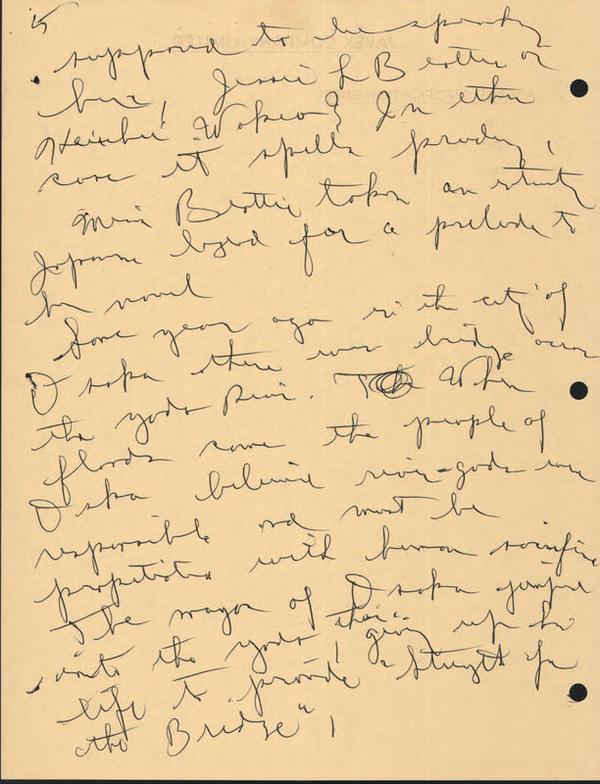 15
supposed to be
her, Jessie L Beattie or
? In either
case it spells
Miss Beattie takes an
Japanese legend for a prelude to
her novel
Some years ago in the city of
Osaka there was bridge over
the yodo River. When
floods came the people of
Osaka believe river-gods were
responsible and must be
propitiated with human sacrifice
The mayor of Osaka jumped
into the yodo giving up his
life to provide "Strength for
the Bridge",